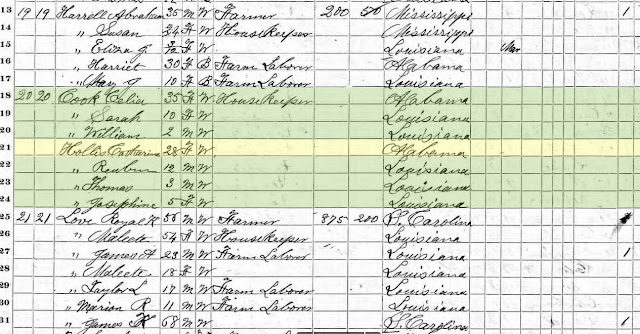 13 19 19 Harrell Abraham 35 M W Farmer 200 500 Mississippi 1
14 " Susan 24 F W Housekeeper Mississippi
15 " Eliza J F W Louisiana Mar
16 " Harriet 30 F B Farm Laborer Alabama
17 " Mary J 10 F B Farm Laborer Louisiana
18 20 20 Cook Celia 35 F W Housekeeper Alabama
19 " Sarah 10 F W Louisiana
20 " William 2 M W Louisiana
21 Hollis Catharine 28 F W Alabama
22 " Reuben 12 M W Louisiana
23 " Thomas 3 M W Louisiana
24 " Josephine 5 F W Louisiana
25 21 21 Love Royal F 56 M W Farmer 375 200 S. Carolina
26 " Maleete 54 F W Housekeeper Louisiana
27 " James A 23 M W Farm Laborer Louisiana 1
28 " Maleete 18 F W Louisiana
29 " Taylor L 17 M W Farm Laborer Louisiana
30 " Marion R 11 M W Farm Laborer Louisiana
31 " James K 68 M W S. Carolina 1